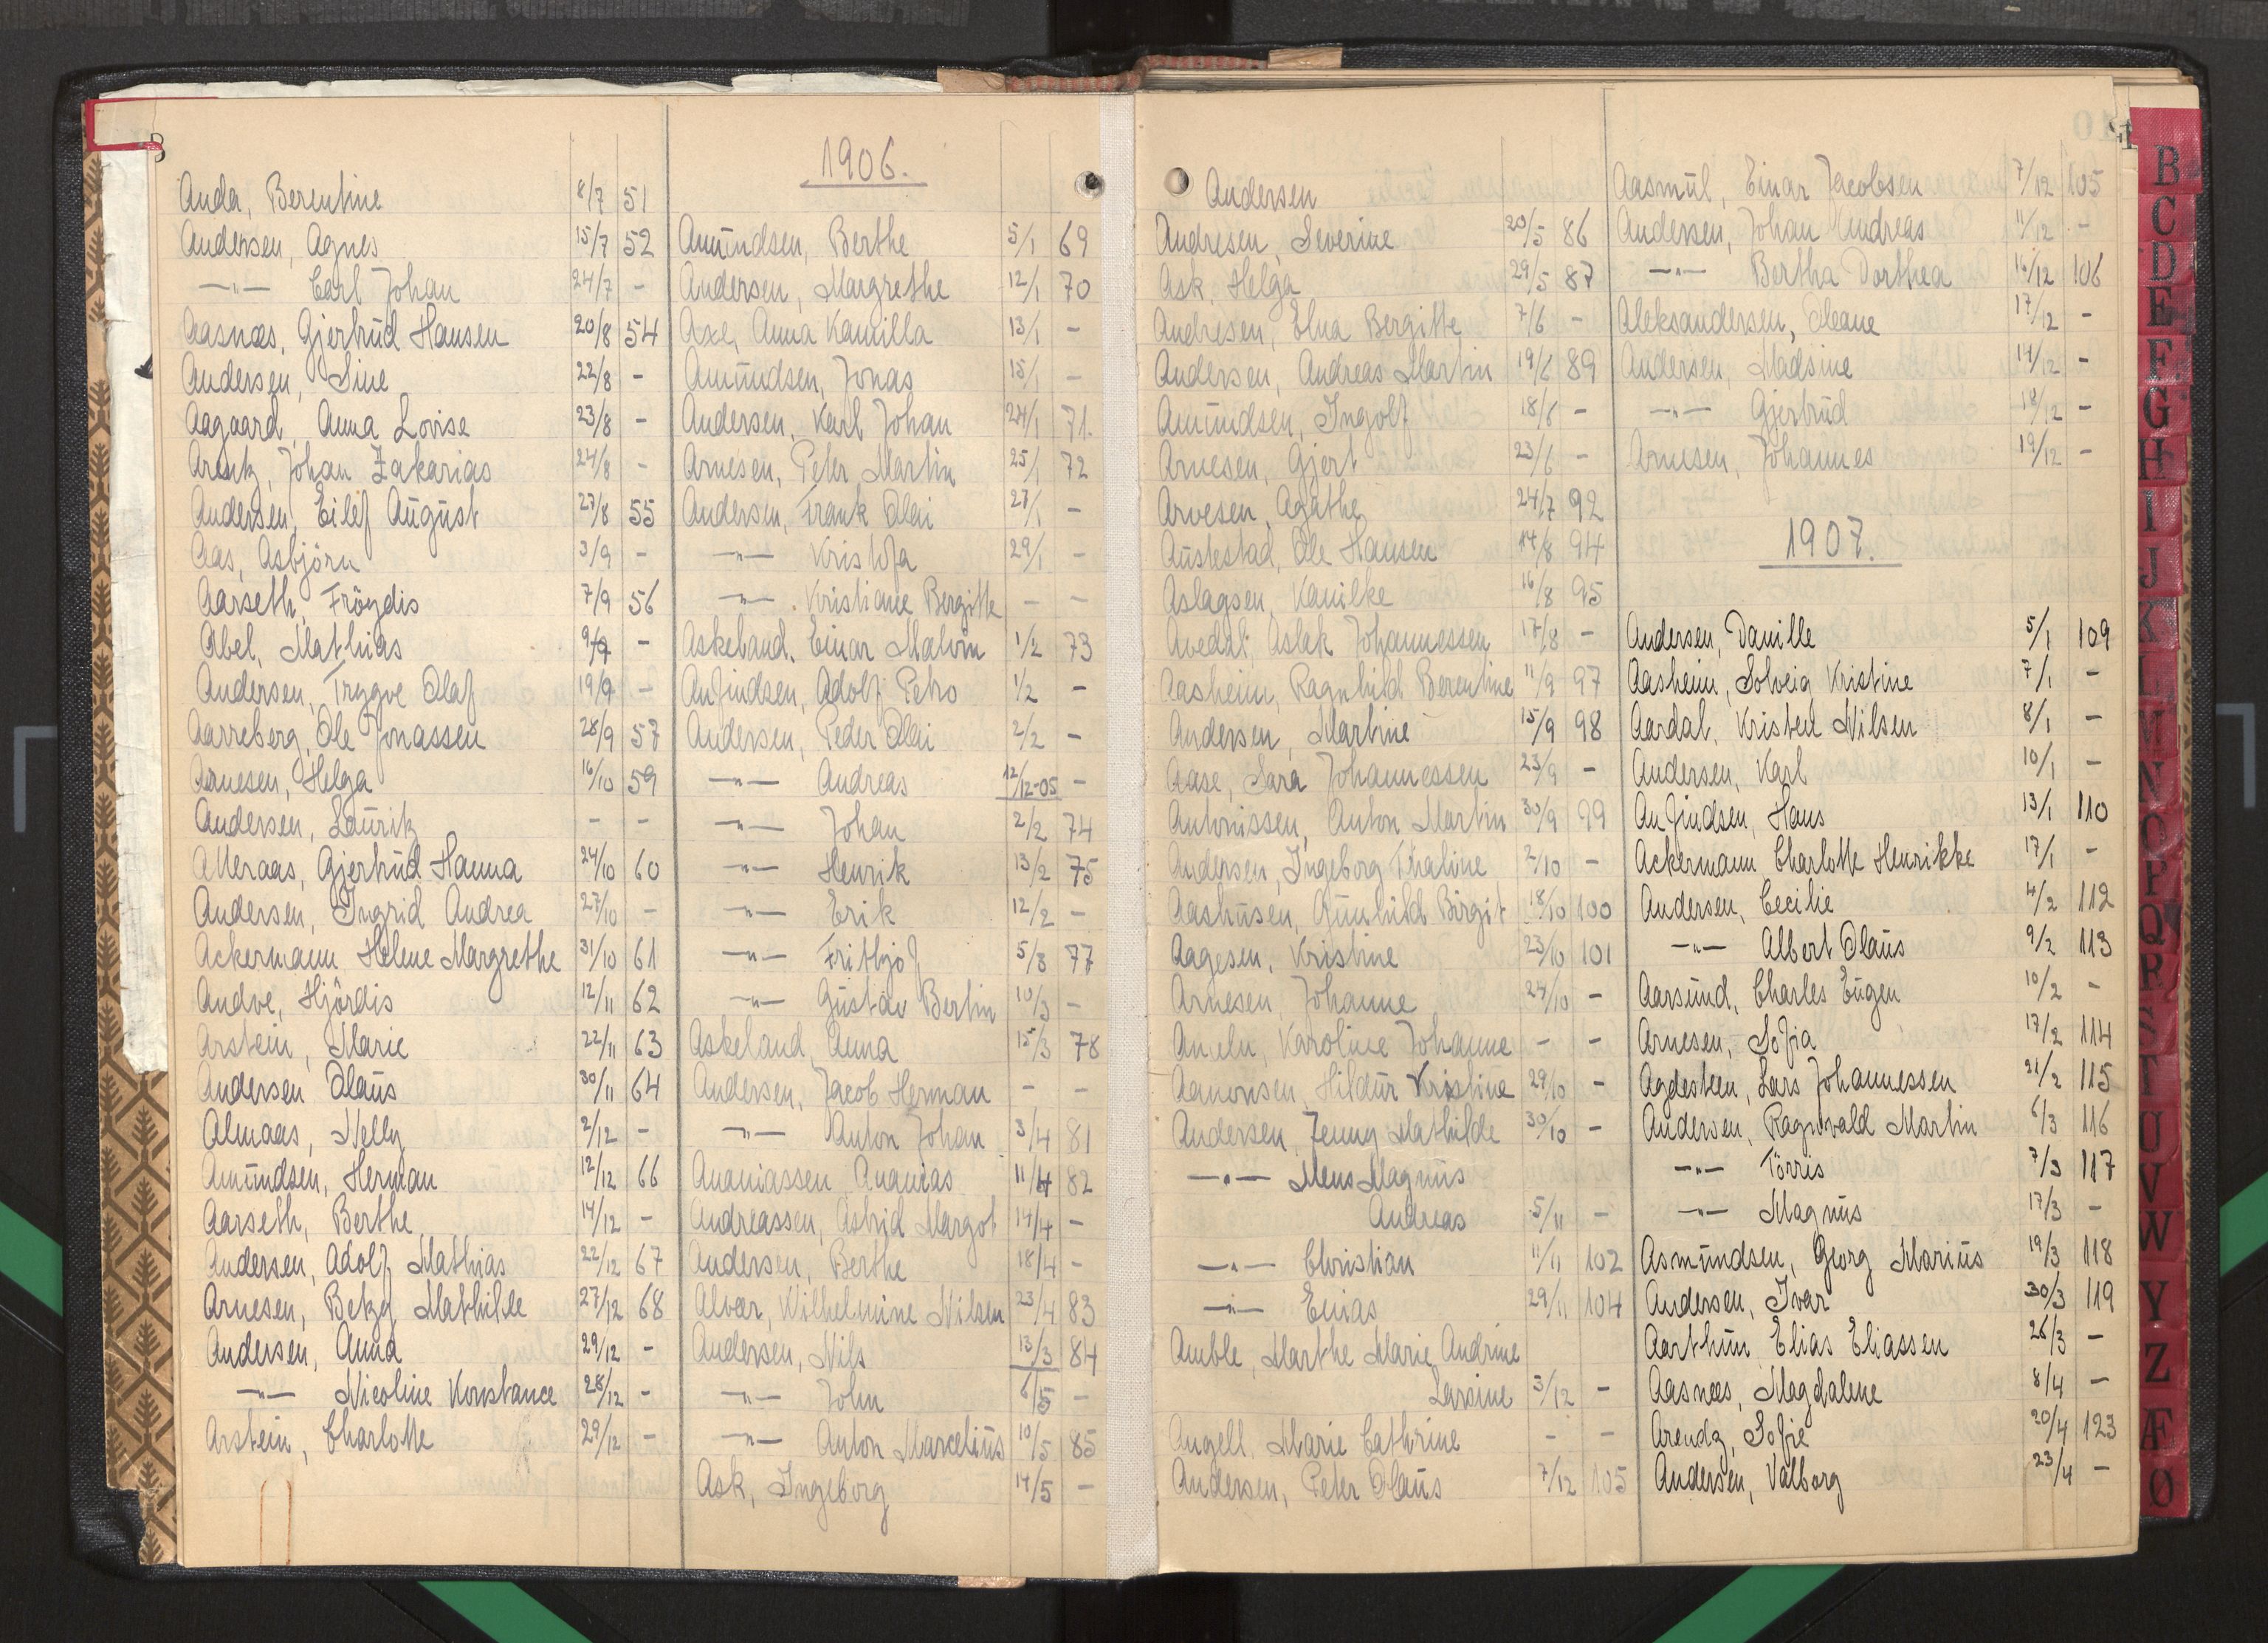 Anda, Berentine 8/7 51
Andersen, Agnes 15/7 52
—"— Carl Johan 24/7 -
Aasnæs, Gjertrud Hansen 20/8 54
Andersen, Sine 22/8 -
Aagaard, Anna Lovise 23/8 -
Arentz, Johan Zakarias 24/8 -
Andersen, Eilef August 27/8 55
Aas, Asbjörn 3/9 -
Aarseth, Fröydis 7/9 56
Abel, Mathias 9/9 -
Andersen, Trygve Olaf 19/9 -
Aarreberg, Ole Jonassen 28/9 57
Arnesen, Helga 16/10 59
Andersen, Lauritz - -
Alleraas, Gjertrud Hanna 24/10 60
Andersen, Ingrid Andrea 27/10 -
Ackermann Helene Margrethe 31/10 61
Andve, Hjördis 12/11 62
Arstein, Marie 22/11 63
Andersen Olaus 30/11 64
Almaas, Nelly 2/12 -
Amundsen, Herman 12/12 66
Aarseth, Berthe 14/12 -
Andersen, Adolf Mathias 22/12 67
Arnesen, Betzy Mathilde 27/12 68
Andersen, Anna 29/12 -
—"— Nicoline Konstance 28/12 -
Arstein, Charlotte 29/12 -
1906.
Amundsen, Berthe 5/1 69
Andersen, Margrethe 12/1 70
Axe, Anna Kamilla 13/1 -
Amundsen, Jonas 15/1 -
Andersen, Karl Johan 24/1 71.
Arnesen, Peter Martin 25/1 72
Andersen, Frank Olai 27/1 -
—"— Kristofa 29/1 -
—"— Kristiane Bergitte - -
Askeland, Einar Malvin 1/2 73
Anfindsen, Adolf Petro 1/2 -
Andersen, Peder Olai 2/2 -
—"— Andreas 12/12-05 -
—"— Johan 2/2 74
—"— Henrik 13/2 75
—"— Erik 12/2 -
—"— Frithjof 5/3 77
—"— Gustav Bertin 10/3 -
Askeland, Anna 15/3 78
Andersen, Jacob Herman - -
—"— Anton Johan 3/4 81
Ananiassen Ananias 11/4 82
Andreassen, Astrid Margot 14/4 -
Andersen, Berthe 18/4 -
Alvær, Wilhelmine Nilsen 23/4 83
Andersen, Nils 13/3 84
—"— John 6/5 -
—"— Anton Marcelius 10/5 85
Ask, Ingeborg 14/5 -
Andersen
Andresen, Severine 20/5 86
Ask, Helga 29/5 87
Andresen, Elna Bergitte 7/6 -
Andersen, Andreas Martin 19/6 89
Amundsen, Ingolf 18/6 -
Arnesen, Gjert 23/6 -
Arvesen, Agathe 24/7 92
Austestad, Ole Hansen 14/8 94
Aslagsen, Kanilke 16/8 95
Avedal, Aslak Johannessen 17/8 -
Aasheim, Ragnhild Berentine 11/9 97
Andersen, Martine 15/9 98
Aase, Sara Johannessen 23/9 -
Antonissen, Anton Martin 30/9 99
Andersen, Ingeborg Thaline 2/10 -
Aashusen, Gunhild Birgit 18/10 100
Aagesen, Kristine 23/10 101
Arnesen, Johanne 24/10 -
Karoline Johanne - -
Aanonsen, Hildur Kristine 29/10 -
Andersen, Jenny Mathilde 30/10 -
—"— Mens Magnus
Andreas 5/11 -
—"— Christian 11/11 102
—"— Enias 29/11 104
Amble, Marthe Marie Andrine
Larsine 3/12 -
Angell, Marie Cathrine - -
Andersen, Peter Olaus 7/12 105
Aasmul, Einar Jacobsen 7/12 105
Andersen, Johan Andreas 11/12 -
—"— Bertha Dorthea 16/12 106
Aleksandersen, Oleane 17/12 -
Andersen, Madsine 17/12 -
—"— Gjertrud 18/12 -
Arnesen, Johannes 19/12 -
1907.
Andersen, Danille 5/1 109
Aasheim, Solveig Kristine 7/1 -
Aardal, Kristen Nilsen 8/1 -
Andersen, Karl 10/1 -
Anfindsen, Hans 13/1 110
Ackermann Charlotte Henrikke 17/1 -
Andersen, Cecilie 4/2 112
—"— Albert Olaus 9/2 113
Aarsund, Charles Eugen 10/2 -
Arnesen, Sofia 17/2 114
Agdesteen, Lars Johannessen 21/2 115
Andersen, Ragnvald Martin 6/3 116
—"— Törris 7/3 117
—"— Magnus 17/3 -
Asmundsen, Georg Marius 19/3 118
Andersen, Ivar 30/3 119
Aarthun Elias Eliassen 26/3 -
Aasnæs, Magdalene 8/4 -
Arendz, Sofie 20/4 123
Andersen, Valborg 23/4 -
B
C
D
E
F
G
H
I
J
K
L
M
N
O
P
Q
R
S
T
U
V
W
Y
Z
Æ
Ø